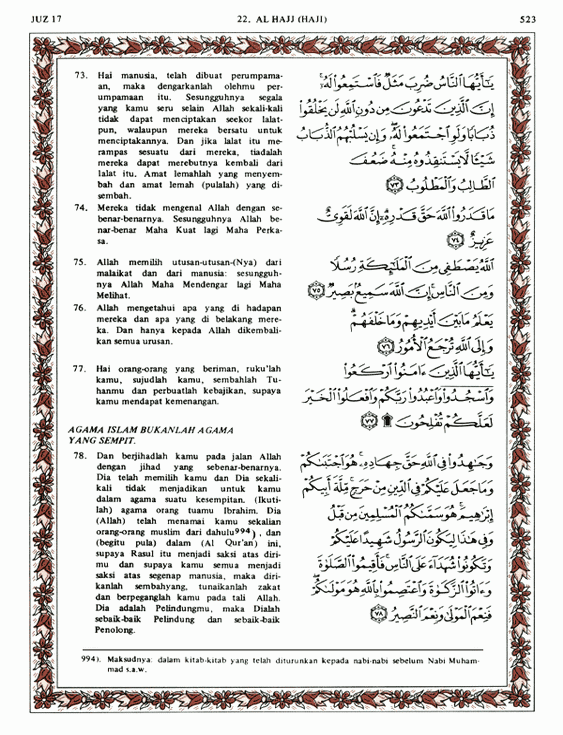 JUZ 17
22. AL HAJJ (HAJI)
523
73. Hai manusia, telah dibuat perumpama-
an, maka dengarkanlah olehmu per-
umpamaan itu. Sesungguhnya segala
yang kamu seru selain Allah sekali-kali
tidak dapat menciptakan seekor lalat-
pun, walaupun mereka bersatu untuk
menciptakannya. Dan jika lalat itu me-
rampas sesuatu dari mereka, tiadalah
mereka dapat merebutnya kembali dari
lalat itu. Amat lemahlah yang menyem-
bah dan amat lemah (pulalah) yang di-
sembah.
74. Mereka tidak mengenal Allah dengan se-
benar-benarnya. Sesungguhnya Allah be-
nar-benar Maha Kuat lagi Maha Perka-
sa.
75. Allah memilih utusan-utusan-(Nya) dari
malaikat dan dari manusia: sesungguh-
nya Allah Maha Mendengar lagi Maha
Melihat.
76. Allah mengetahui apa yang di hadapan
mereka dan apa yang di belakang mere-
ka. Dan hanya kepada Allah dikembali-
kan semua urusan.
77. Hai orang-orang yang beriman, ruku'lah
kamu, sujudlah kamu, sembahlah Tu-
hanmu dan perbuatlah kebajikan, supaya
kamu mendapat kemenangan.
AGAMA ISLAM BUKANLAH AGAMA
YANG SEMPIT.
78. Dan berjihadlah kamu pada jalan Allah
dengan jihad yang sebenar-benarnya.
Dia telah memilih kamu dan Dia sekali-
kali tidak menjadikan untuk kamu
dalam agama suatu kesempitan. (Ikuti-
lah) agama orang tuamu Ibrahim. Dia
(Allah) telah menamai kamu sekalian
orang-orang muslim dari dahulu994), dan
(begitu pula) dalam (Al Qur'an) ini,
supaya Rasul itu menjadi saksi atas diri-
mu dan supaya kamu semua menjadi
saksi atas segenap manusia, maka diri-
kanlah sembahyang, tunaikanlah zakat
dan berpeganglah kamu pada tali Allah.
Dia adalah Pelindungmu, maka Dialah
sebaik-baik Pelindung dan sebaik-baik
Penolong.
يَٰٓأَيُّهَا ٱلنَّاسُ ضُرِبَ مَثَلٌ فَٱسْتَمِعُوا۟ لَهُۥٓ
إِنَّ ٱلَّذِينَ تَدْعُونَ مِن دُونِ ٱللَّهِ لَن يَخْلُقُوا۟
ذُبَابًا وَلَوِ ٱجْتَمَعُوا۟ لَهُۥ وَإِن يَسْلُبْهُمُ ٱلذُّبَابُ
شَيْـًٔا لَّا يَسْتَنقِذُوهُ مِنْهُ ضَعُفَ
ٱلطَّالِبُ وَٱلْمَطْلُوبُ ٧٣
مَا قَدَرُوا۟ ٱللَّهَ حَقَّ قَدْرِهِۦٓ إِنَّ ٱللَّهَ لَقَوِىٌّ
عَزِيزٌ ٧٤
ٱللَّهُ يَصْطَفِى مِنَ ٱلْمَلَٰٓئِكَةِ رُسُلًا
وَمِنَ ٱلنَّاسِ إِنَّ ٱللَّهَ سَمِيعٌۢ بَصِيرٌ ٧٥
يَعْلَمُ مَا بَيْنَ أَيْدِيهِمْ وَمَا خَلْفَهُمْ
وَإِلَى ٱللَّهِ تُرْجَعُ ٱلْأُمُورُ ٧٦
يَٰٓأَيُّهَا ٱلَّذِينَ ءَامَنُوا۟ ٱرْكَعُوا۟
وَٱسْجُدُوا۟ وَٱعْبُدُوا۟ رَبَّكُمْ وَٱفْعَلُوا۟ ٱلْخَيْرَ
لَعَلَّكُمْ تُفْلِحُونَ ۩ ٧٧
وَجَٰهِدُوا۟ فِى ٱللَّهِ حَقَّ جِهَادِهِۦ هُوَ ٱجْتَبَىٰكُمْ
وَمَا جَعَلَ عَلَيْكُمْ فِى ٱلدِّينِ مِنْ حَرَجٍ مِّلَّةَ أَبِيكُمْ
إِبْرَٰهِيمَ هُوَ سَمَّىٰكُمُ ٱلْمُسْلِمِينَ مِن قَبْلُ
وَفِى هَٰذَا لِيَكُونَ ٱلرَّسُولُ شَهِيدًا عَلَيْكُمْ
وَتَكُونُوا۟ شُهَدَآءَ عَلَى ٱلنَّاسِ فَأَقِيمُوا۟ ٱلصَّلَوٰةَ
وَءَاتُوا۟ ٱلزَّكَوٰةَ وَٱعْتَصِمُوا۟ بِٱللَّهِ هُوَ مَوْلَىٰكُمْ
فَنِعْمَ ٱلْمَوْلَىٰ وَنِعْمَ ٱلنَّصِيرُ ٧٨
994). Maksudnya: dalam kitab-kitab yang telah diturunkan kepada nabi-nabi sebelum Nabi Muham-
mad s.a.w.